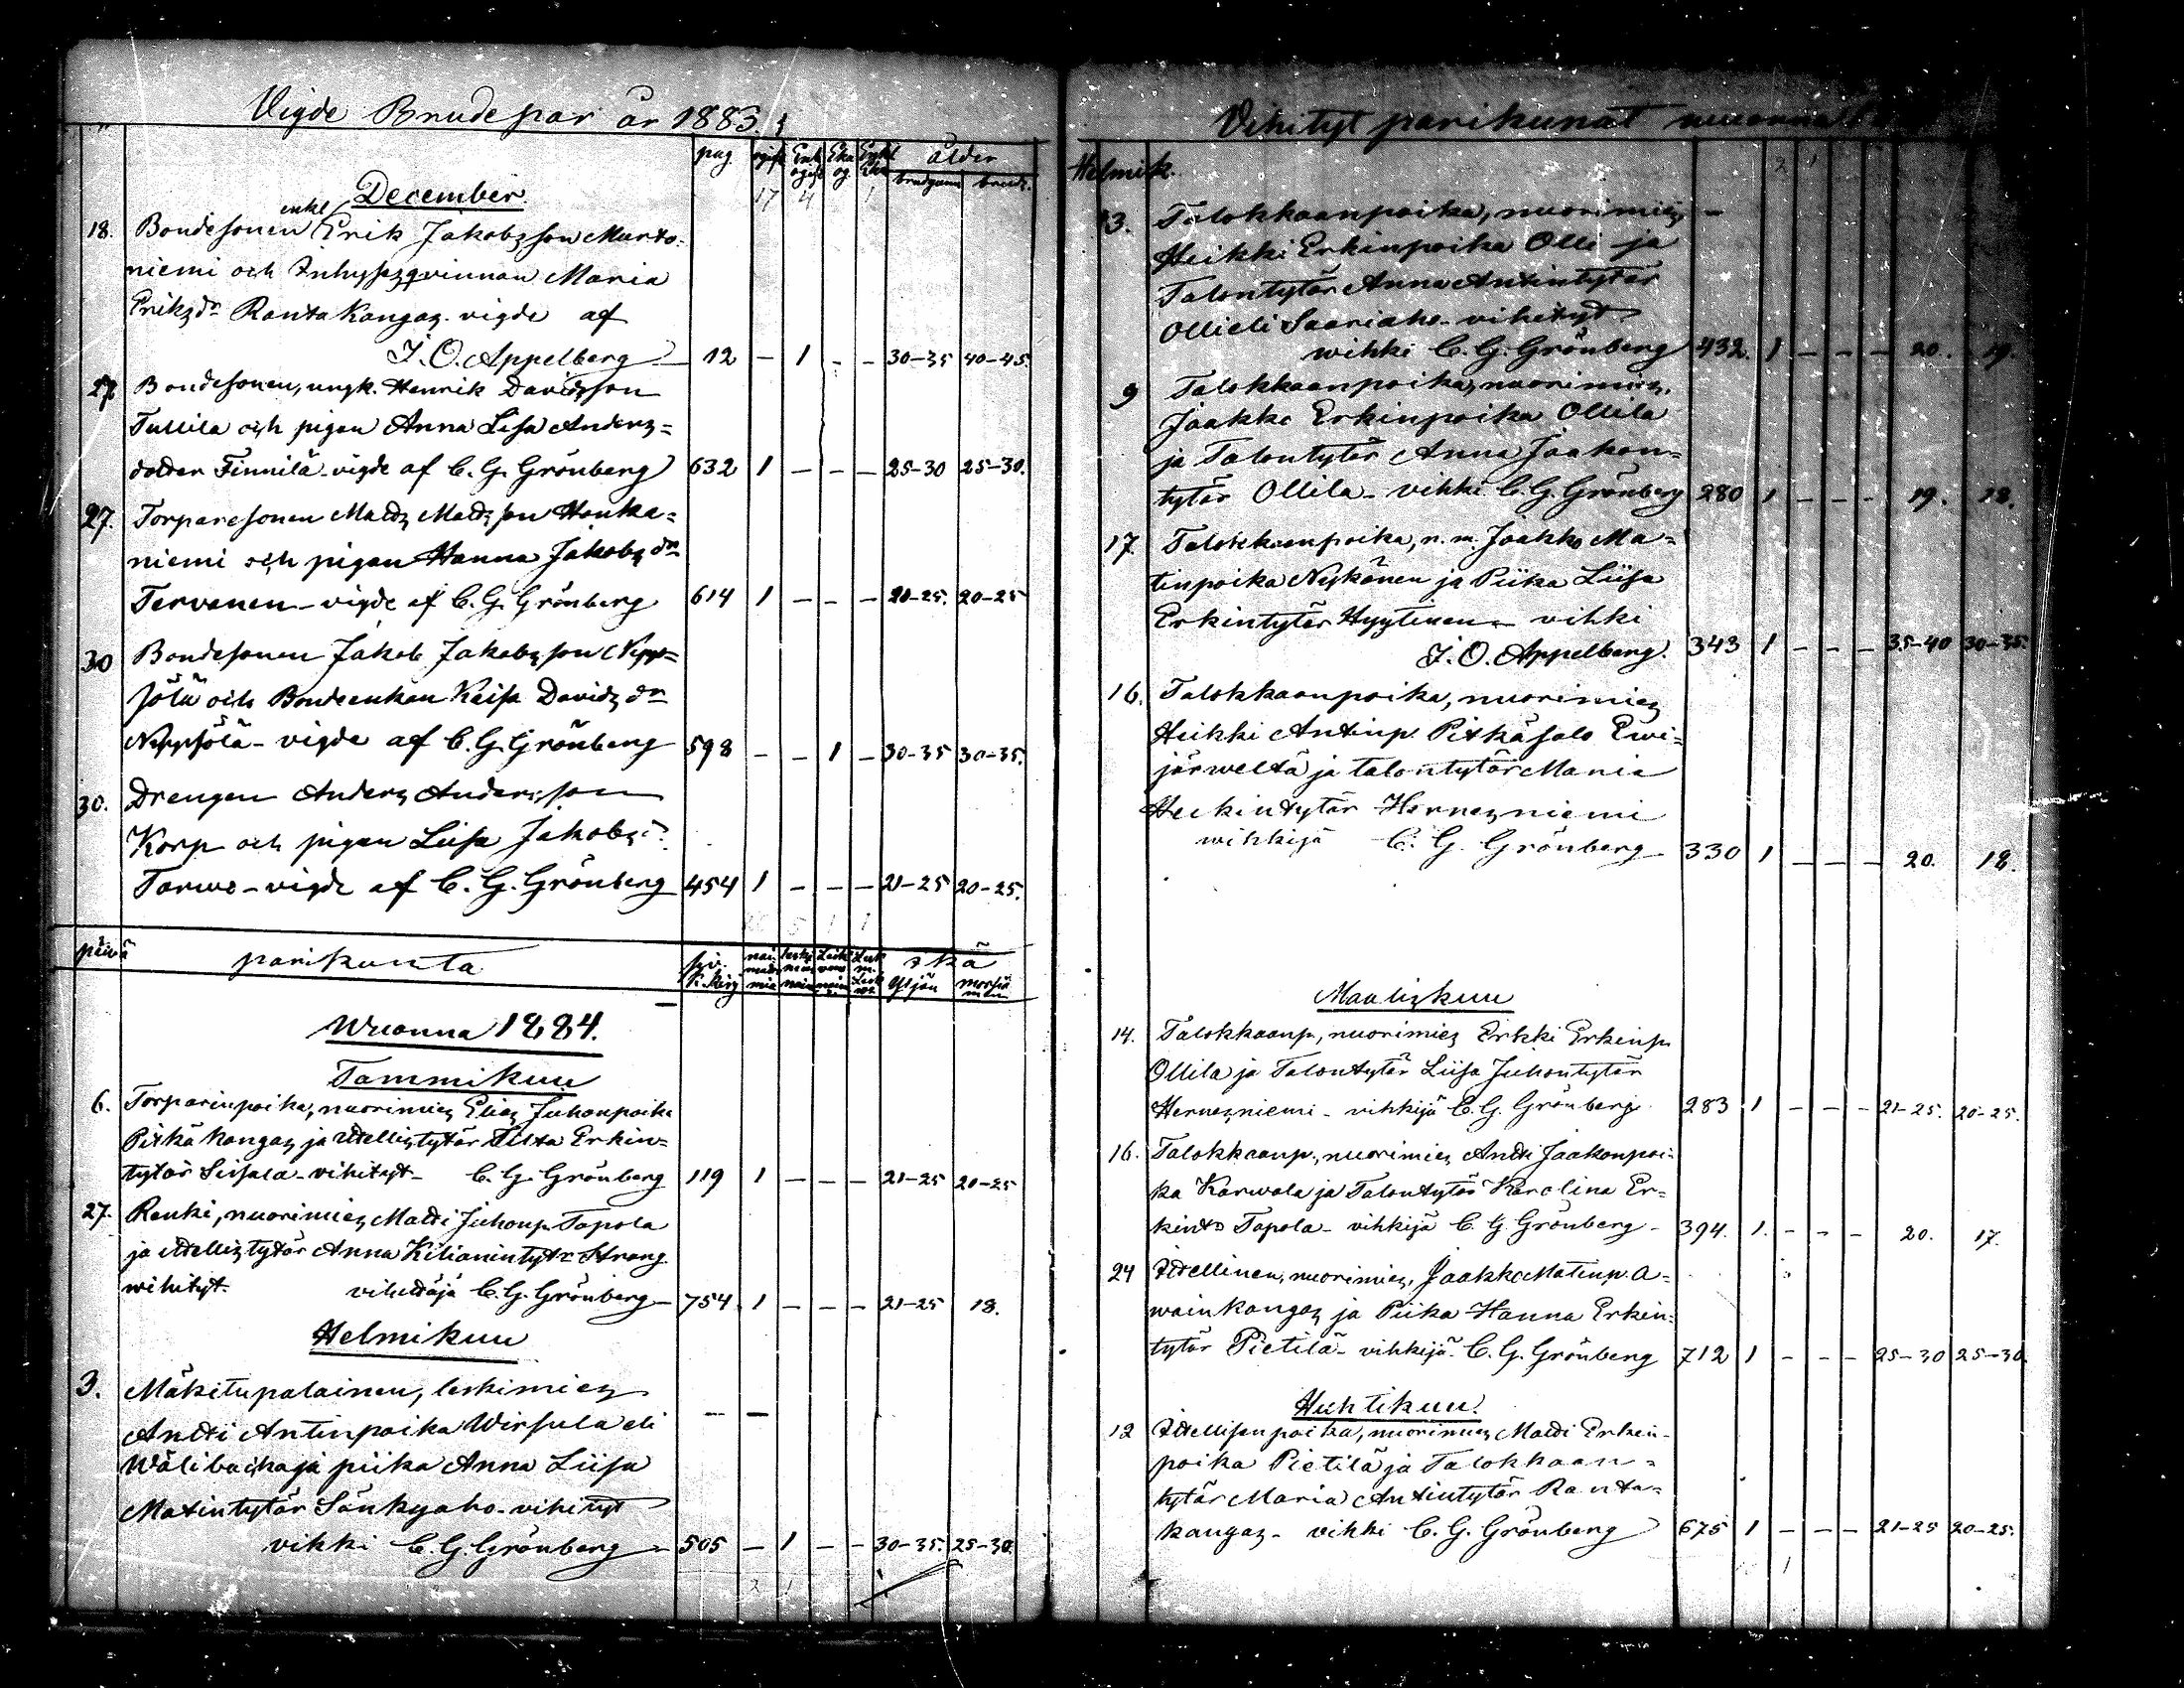 Vigde Brudepar år 1883.
pag ogift Enkl ogift Eka og Enkl Eka ålder
brudgum brud.
December.
17 4 1
18. Bondesonen enkl Erik Jakobsson Murto-
niemi och Inhyseqvinnan Maria
Eriksdr Rantakangas vigde af
J. O. Appelberg 12 – 1 – – 30–35 40–45.
27. Bondesonen, ungk. Henrik Davidsson
Tullila och pigan Anna Lisa Anders=
dotter Finnilä vigde af C. G. Grönberg 632 1 – – – 25–30 25–30.
27. Torparesonen Matts Mattsson Honka=
niemi och pigan Hanna Jakobsdr
Tervonen – vigde af C. G. Grönberg 614 1 – – – 21–25. 20–25
30 Bondesonen Jakob Jakobsson Nypp=
sölä och Bondeenkan Kaisa Davidsdr
Nyppsölä – vigde af C. G. Grönberg 598 – – 1 – 30–35 30–35.
30. Drengen Anders Andersson
Korp och pigan Liisa Jakobsd.
Tarwo – vigde af C. G. Grönberg 454 1 – – – 21–25 20–25.
päivä parikunta ikä
Yljän morsiamen
Wuonna 1884.
Tammikuu
6. Torparinpoika, nuorimies Elias Juhonpoika
Pitkäkangas ja itellistytär Tilta Erkin=
tytär Seisala – vihityt – C. G. Grönberg 119 1 – – – 21–25 20–25
27. Renki, nuorimies Matti Juhonp. Tapola
ja itellistytär Anna Kilianintytr Strang
wihityt. vihettäjä C. G. Grönberg – 754 1 – – – 21–25 18.
Helmikuu
3. Mäkitupalainen, leskimies
Antti Antinpoika Wirsula eli
Wälibacka ja piika Anna Liisa
Matintytär Sänkyaho – vihityt
vihki C. G. Grönberg – 505 – 1 – – 30–35. 25–30.
Vihityt parikunat vuonna
Helmik.
3. Talokkaanpoika, nuorimies –
Heikki Erkinpoika Olli ja
Talontytär Anna Antintytär
Olli eli Saariaho – vihityt
wihki C. G. Grönberg 432. 1 – – – 20. 19.
9 Talokkaanpoika, nuorimies,
Jaakko Erkinpoika Ollila
ja Talontytär Anna Jaakon=
tytär Ollila – vihki C. G. Grönberg 280 1 – – – 19. 18.
17 Talokkaanpoika, n. m. Jaakko Ma=
tinpoika Nykänen ja Piika Liisa
Erkintytär Hyytinen – vihki
J. O. Appelberg. 343 1 – – – 35–40 30–35.
16. Talokkaanpoika, nuorimies
Heikki Antinp. Pitkäsalo Ewi=
järweltä ja talontytär Maria
Heikintytär Hernesniemi
wihkijä C. G. Grönberg – 330 1 – – – 20. 18.
Maaliskuu
14. Talokkaanp., nuorimies Erkki Erkinp.
Ollila ja Talontytär Liisa Juhontytär
Hernesniemi – vihkijä C. G. Grönberg 283 1 – – – 21–25. 20–25.
16. Talokkaanp., nuorimies Antti Jaakonpoi=
ka Karwala ja Talontytär Karolina Er=
kint. Tapola – vihkijä C. G. Grönberg – 394. 1. – – – 20. 17.
24 Itellinen, nuorimies, Jaakko Matinp. A=
wainkangas ja Piika Hanna Erkin=
tytär Pietilä – vihkijä C. G. Grönberg 712 1 – – – 25–30 25–30.
Huhtikuu.
12 Itellisenpoika, nuorimies Matti Erkin-
poika Pietilä ja Talokkaan=
tytär Maria Antintytär Ranta=
kangas – vihki C. G. Grönberg 675 1 – – – 21–25 20–25.